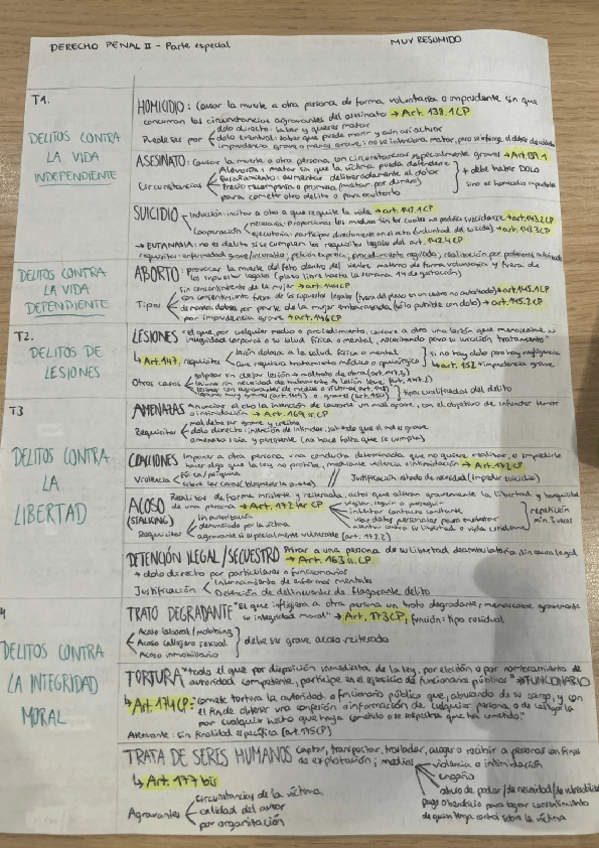 DERECHO PENAL II - Parte especial
MUY RESUMIDO
T1.
DELITOS CONTRA
LA VIDA
INDEPENDIENTE
HOMICIDIO: Causar la muerte a otra persona de forma voluntaria o imprudente sin que
concurran las circunstancias agravantes del asesinato → Art. 138.1 CP
Puede ser por
dolo directo: saber y querer matar
dolo eventual: saber que puede morir y aún así actuar
imprudencia grave o menos grave: no se
ASESINATO: Causar la muerte a otra persona, con circunstancias especialmente graves → Art. 139.1
Circunstancias
Alevosía: matar sin que la víctima pueda defenderse
Ensañamiento: aumentar deliberadamente el dolor
Precio, recompensa o promesa (matar por dinero)
para cometer otro delito o para ocultarlo
debe haber DOLO
sino es homicidio imprudente
SUICIDIO
Inducción: incitar a otro a que se quite la vida → art. 143.1 CP
Cooperación
necesaria: Proporcionar los medios sin los cuales no podría suicidarse → art. 143.2 CP
ejecutoria: participar directamente en el acto (voluntad del suicida) → art. 143.3 CP
→ EUTANASIA: no es delito si se cumplen los requisitos legales del art. 143.4 CP
requisitos: enfermedad grave/incurable; petición expresa; procedimiento regulado; realización por
DELITOS CONTRA
LA VIDA
DEPENDIENTE
ABORTO: provocar la muerte del feto dentro del vientre materno de forma voluntaria y fuera de
los supuestos legales (plazo libre hasta la semana 14 de gestación)
Tipos
sin consentimiento de la mujer → art. 144 CP
con consentimiento fuera de los supuestos legales (fuera del plazo o en centro no autorizado) → art. 145.1 CP
por parte de la mujer embarazada (sólo punible con dolo) → art. 145.2 CP
por imprudencia grave → art. 146 CP
T2.
DELITOS DE
LESIONES
LESIONES "el que, por cualquier medio o procedimiento, causare a otro una lesión que menoscabe su
integridad corporal o su salud física o mental, necesitando para su curación tratamiento"
↳ Art. 147, requisitos
lesión dolosa a la salud física o mental
que requiera tratamiento médico o quirúrgico
si no hay dolo pero hay negligencia
↳ art. 152 → imprudencia grave
Otros casos
golpear sin dejar lesión → maltrato de obra (art. 147.3)
lesión sin necesidad de tratamiento → lesión leve (art. 147.2)
tipos cualificados del delito
T3
DELITOS CONTRA
LA
LIBERTAD
AMENAZAS Anunciar al otro la intención de causarle un mal grave, con el objetivo de infundir temor
o intimidación → Art. 169 ss. CP
Requisitos
mal debe ser grave y creíble
dolo directo: intención de intimidar, sabiendo que el mal es grave
amenaza seria y persistente (no hace falta que se cumpla)
COACCIONES Imponer a otra persona, una conducta determinada, que no quiere realizar, o impedirle
hacer algo que la ley no prohíbe, mediante violencia o intimidación → Art. 172 CP
Violencia
física/psíquica
sobre las cosas
Justificación estado de necesidad (impedir suicidio)
ACOSO
(STALKING)
Realizar de forma insistente y reiterada, actos que alteran gravemente la libertad y tranquilidad
de una persona → Art. 172 ter CP
Requisitos
sin autorización
denunciado por la víctima
agravante si especialmente vulnerable (art. 172.2)
vigilar, seguir o perseguir
intentar contacto constante
usar datos personales para molestar
atentar contra su libertad o vida cotidiana
repetición
min. 3 veces
DETENCIÓN ILEGAL/SECUESTRO Privar a una persona de su libertad deambulatoria, sin causa legal
→ Art. 163 ss. CP
→ dolo directo por particulares o funcionarios
Justificación
Internamiento de enfermos mentales
Detención de delincuentes de flagrante delito
DELITOS CONTRA
LA INTEGRIDAD
MORAL
TRATO DEGRADANTE "El que infligiera a otra persona un trato degradante, menoscabe gravemente
su integridad moral" → Art. 173 CP, función: tipo residual
Acoso laboral/mobbing
Acoso callejero sexual
Acoso inmobiliario
debe ser grave acoso reiterado
TORTURA "todo el que por disposición inmediata de la ley, por elección o por nombramiento de
autoridad competente, participe en el ejercicio de funciones públicas" → FUNCIONARIO
↳ Art. 174 CP = comete tortura la autoridad o funcionario público que, abusando de su cargo, y con
el fin de obtener una confesión o información de cualquier persona o de castigarla
por cualquier hecho que haya cometido o se sospeche que ha cometido."
Atenuante: sin finalidad específica (art. 175 CP)
TRATA DE SERES HUMANOS Captar, transportar, trasladar, acoger o recibir a personas con fines
de explotación; medios
↳ Art. 177 bis
violencia o intimidación
engaño
abuso de poder/de necesidad/de vulnerabilidad
pago o beneficio para lograr consentimiento
de quien tenga control sobre la víctima
Agravantes
circunstancias de la víctima
calidad del autor
por organización